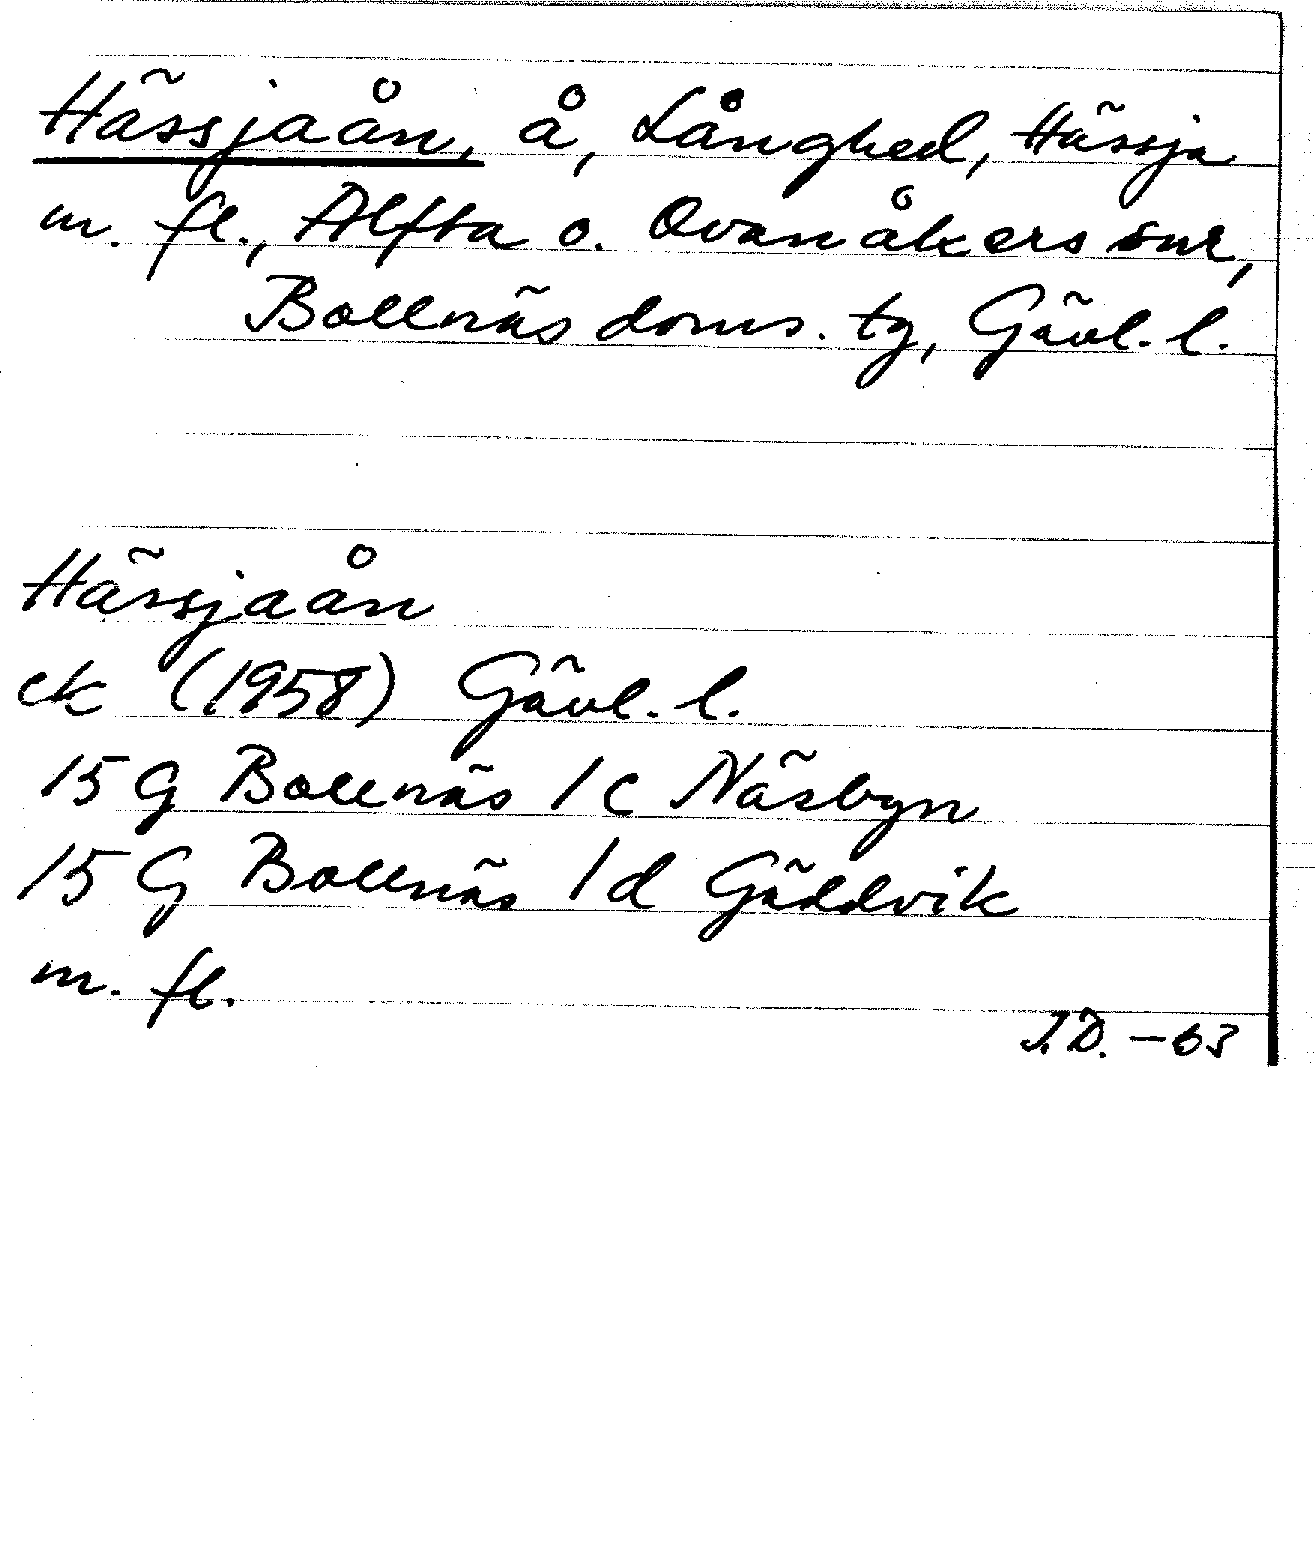 Hässjaån, å, Långhed, Hässja
m. fl., Alfta o. Ovanåkers snr,
Bollnäs doms. tg, Gävl. l.
Hässjaån
ek (1958) Gävl. l.
15 G Bollnäs 1 c Näsbyn
15 G Bollnäs 1 d Gäddvik
m. fl.
J.D. -63